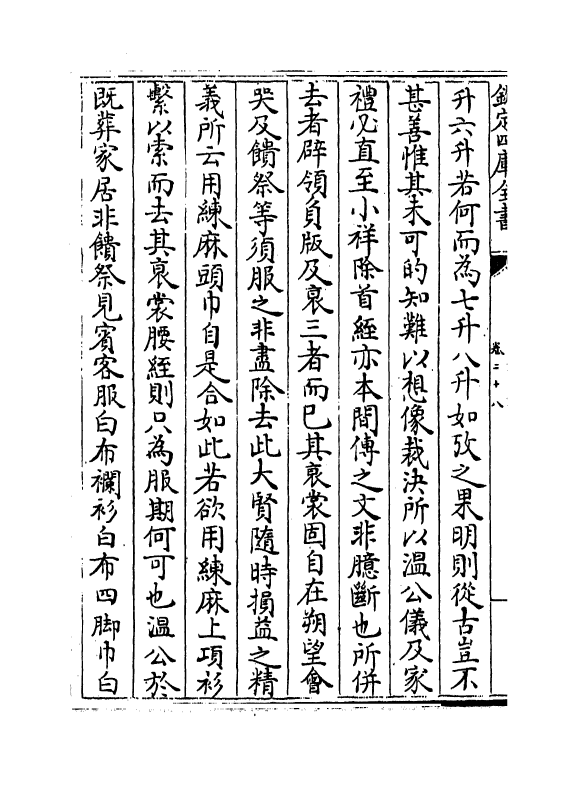 欽定四庫全書
卷二十八
升六升若何而為七升八升如攷之果明則從古豈不
甚善惟其未可的知難以想像裁決所以溫公儀及家
禮必直至小祥除首絰亦本間傳之文非臆斷也所併
去者辟領負版及衰三者而已其衰裳固自在朔望會
哭及饋祭等須服之非盡除去此大賢隨時損益之精
義所云用練麻頭巾自是合如此若欲用練麻上項衫
繫以索而去其衰裳腰絰則只為服期何可也溫公於
既葬家居非饋祭見賓客服白布襴衫白布四脚巾白